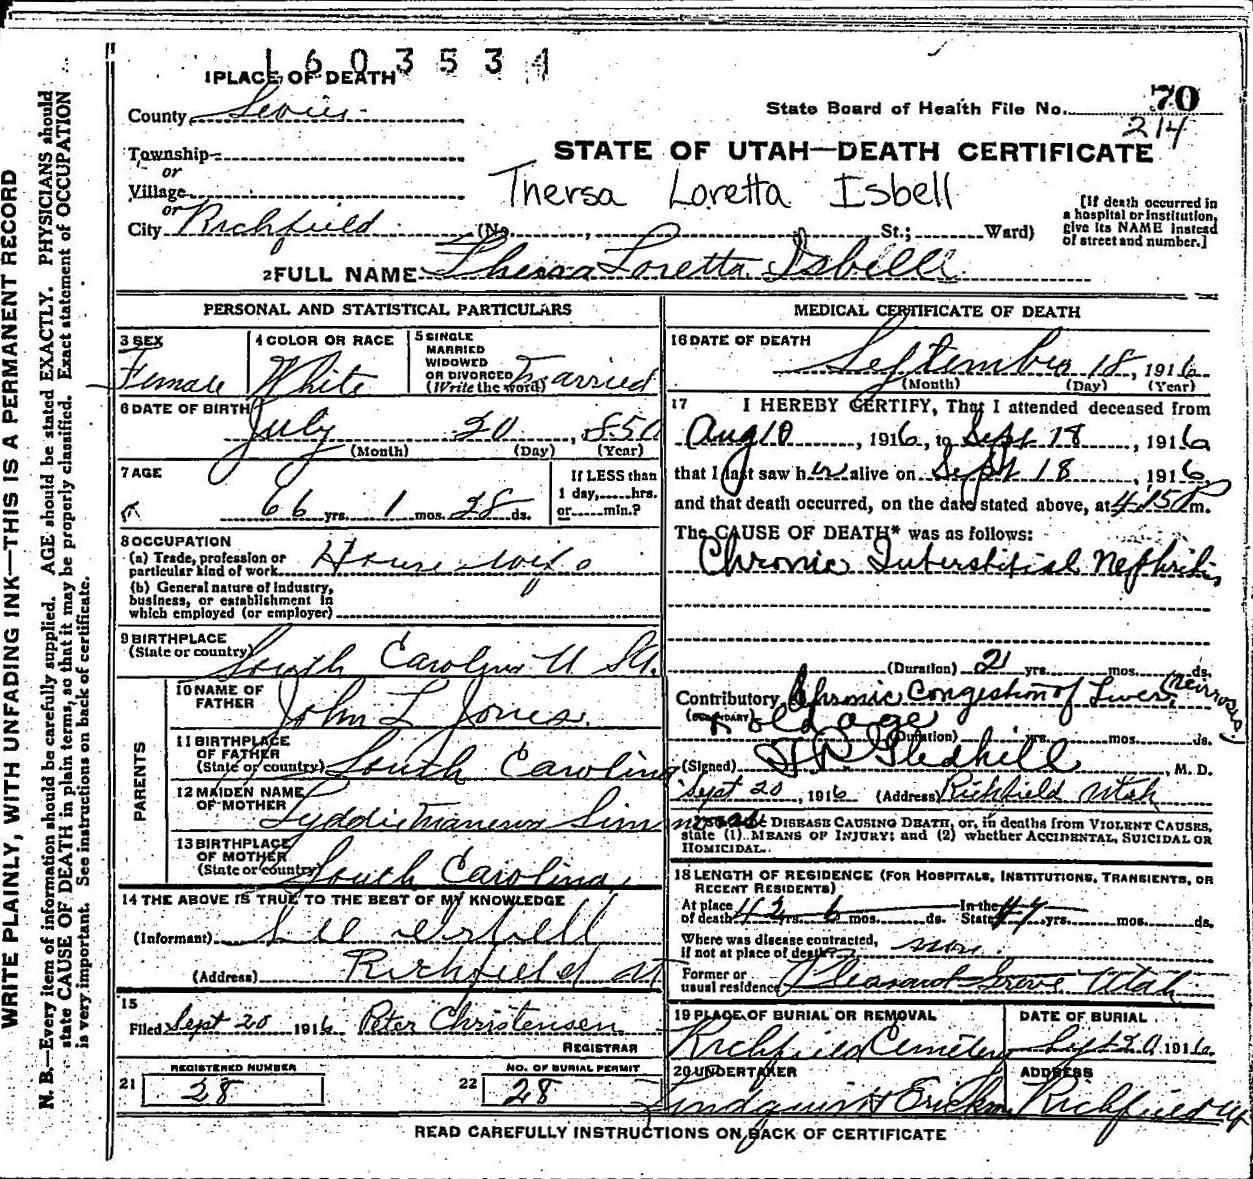 1603534
1 PLACE OF DEATH
County Sevier
State Board of Health File No. 70
214
Township
or
STATE OF UTAH—DEATH CERTIFICATE
Village
or
Thersa Loretta Isbell
City Richfield (No. , St.; Ward)
[If death occurred in
a hospital or institution,
give its NAME instead
of street and number.]
2 FULL NAME Thersa Loretta Isbell
PERSONAL AND STATISTICAL PARTICULARS
3 SEX
Female
4 COLOR OR RACE
White
5 SINGLE
MARRIED
WIDOWED
OR DIVORCED
(Write the word) Married
6 DATE OF BIRTH
July 20, 1850
(Month) (Day) (Year)
7 AGE
66 yrs. 1 mos. 28 ds.
If LESS than
1 day,......hrs.
or......min.?
8 OCCUPATION
(a) Trade, profession or
particular kind of work House wife
(b) General nature of industry,
business, or establishment in
which employed (or employer)
9 BIRTHPLACE
(State or country) South Carolina U. St.
PARENTS
10 NAME OF
FATHER John L Jones.
11 BIRTHPLACE
OF FATHER
(State or country) South Carolina
12 MAIDEN NAME
OF MOTHER
13 BIRTHPLACE
OF MOTHER
(State or country) South Carolina
14 THE ABOVE IS TRUE TO THE BEST OF MY KNOWLEDGE
(Informant) Lee Isbell
(Address) Richfield Ut
15
Filed Sept 20 1916 Peter Christensen
REGISTRAR
21 REGISTERED NUMBER
28
22 NO. OF BURIAL PERMIT
28
MEDICAL CERTIFICATE OF DEATH
16 DATE OF DEATH
September 18, 1916
(Month) (Day) (Year)
17 I HEREBY CERTIFY, That I attended deceased from
Aug 10, 1916, to Sept 18, 1916
that I last saw her alive on Sept 18, 1916,
and that death occurred, on the date stated above, at 4:15 P m.
The CAUSE OF DEATH* was as follows:
Chronic Interstitial Nephritis
(Duration) 2 yrs. mos. ds.
Contributory Chronic Congestion of Liver
(SECONDARY) & old age
(Duration) yrs. mos. ds.
(Signed) Gledhill, M. D.
Sept 20, 1916 (Address) Richfield Utah
DISEASE CAUSING DEATH, or, in deaths from VIOLENT CAUSES,
state (1) MEANS OF INJURY; and (2) whether ACCIDENTAL, SUICIDAL OR
HOMICIDAL.
18 LENGTH OF RESIDENCE (FOR HOSPITALS, INSTITUTIONS, TRANSIENTS, OR
RECENT RESIDENTS)
At place
of death 42 yrs. 6 mos. ds. In the State 47 yrs. mos. ds.
Where was disease contracted,
if not at place of death?
Former or
usual residence Pleasant Grove Utah
19 PLACE OF BURIAL OR REMOVAL
Richfield Cemetery
DATE OF BURIAL
Sept 20, 1916
20 UNDERTAKER
ADDRESS
Richfield Ut
READ CAREFULLY INSTRUCTIONS ON BACK OF CERTIFICATE
WRITE PLAINLY, WITH UNFADING INK—THIS IS A PERMANENT RECORD
N. B.—Every item of information should be carefully supplied. AGE should be stated EXACTLY. PHYSICIANS should
state CAUSE OF DEATH in plain terms, so that it may be properly classified. Exact statement of OCCUPATION
is very important. See instructions on back of certificate.